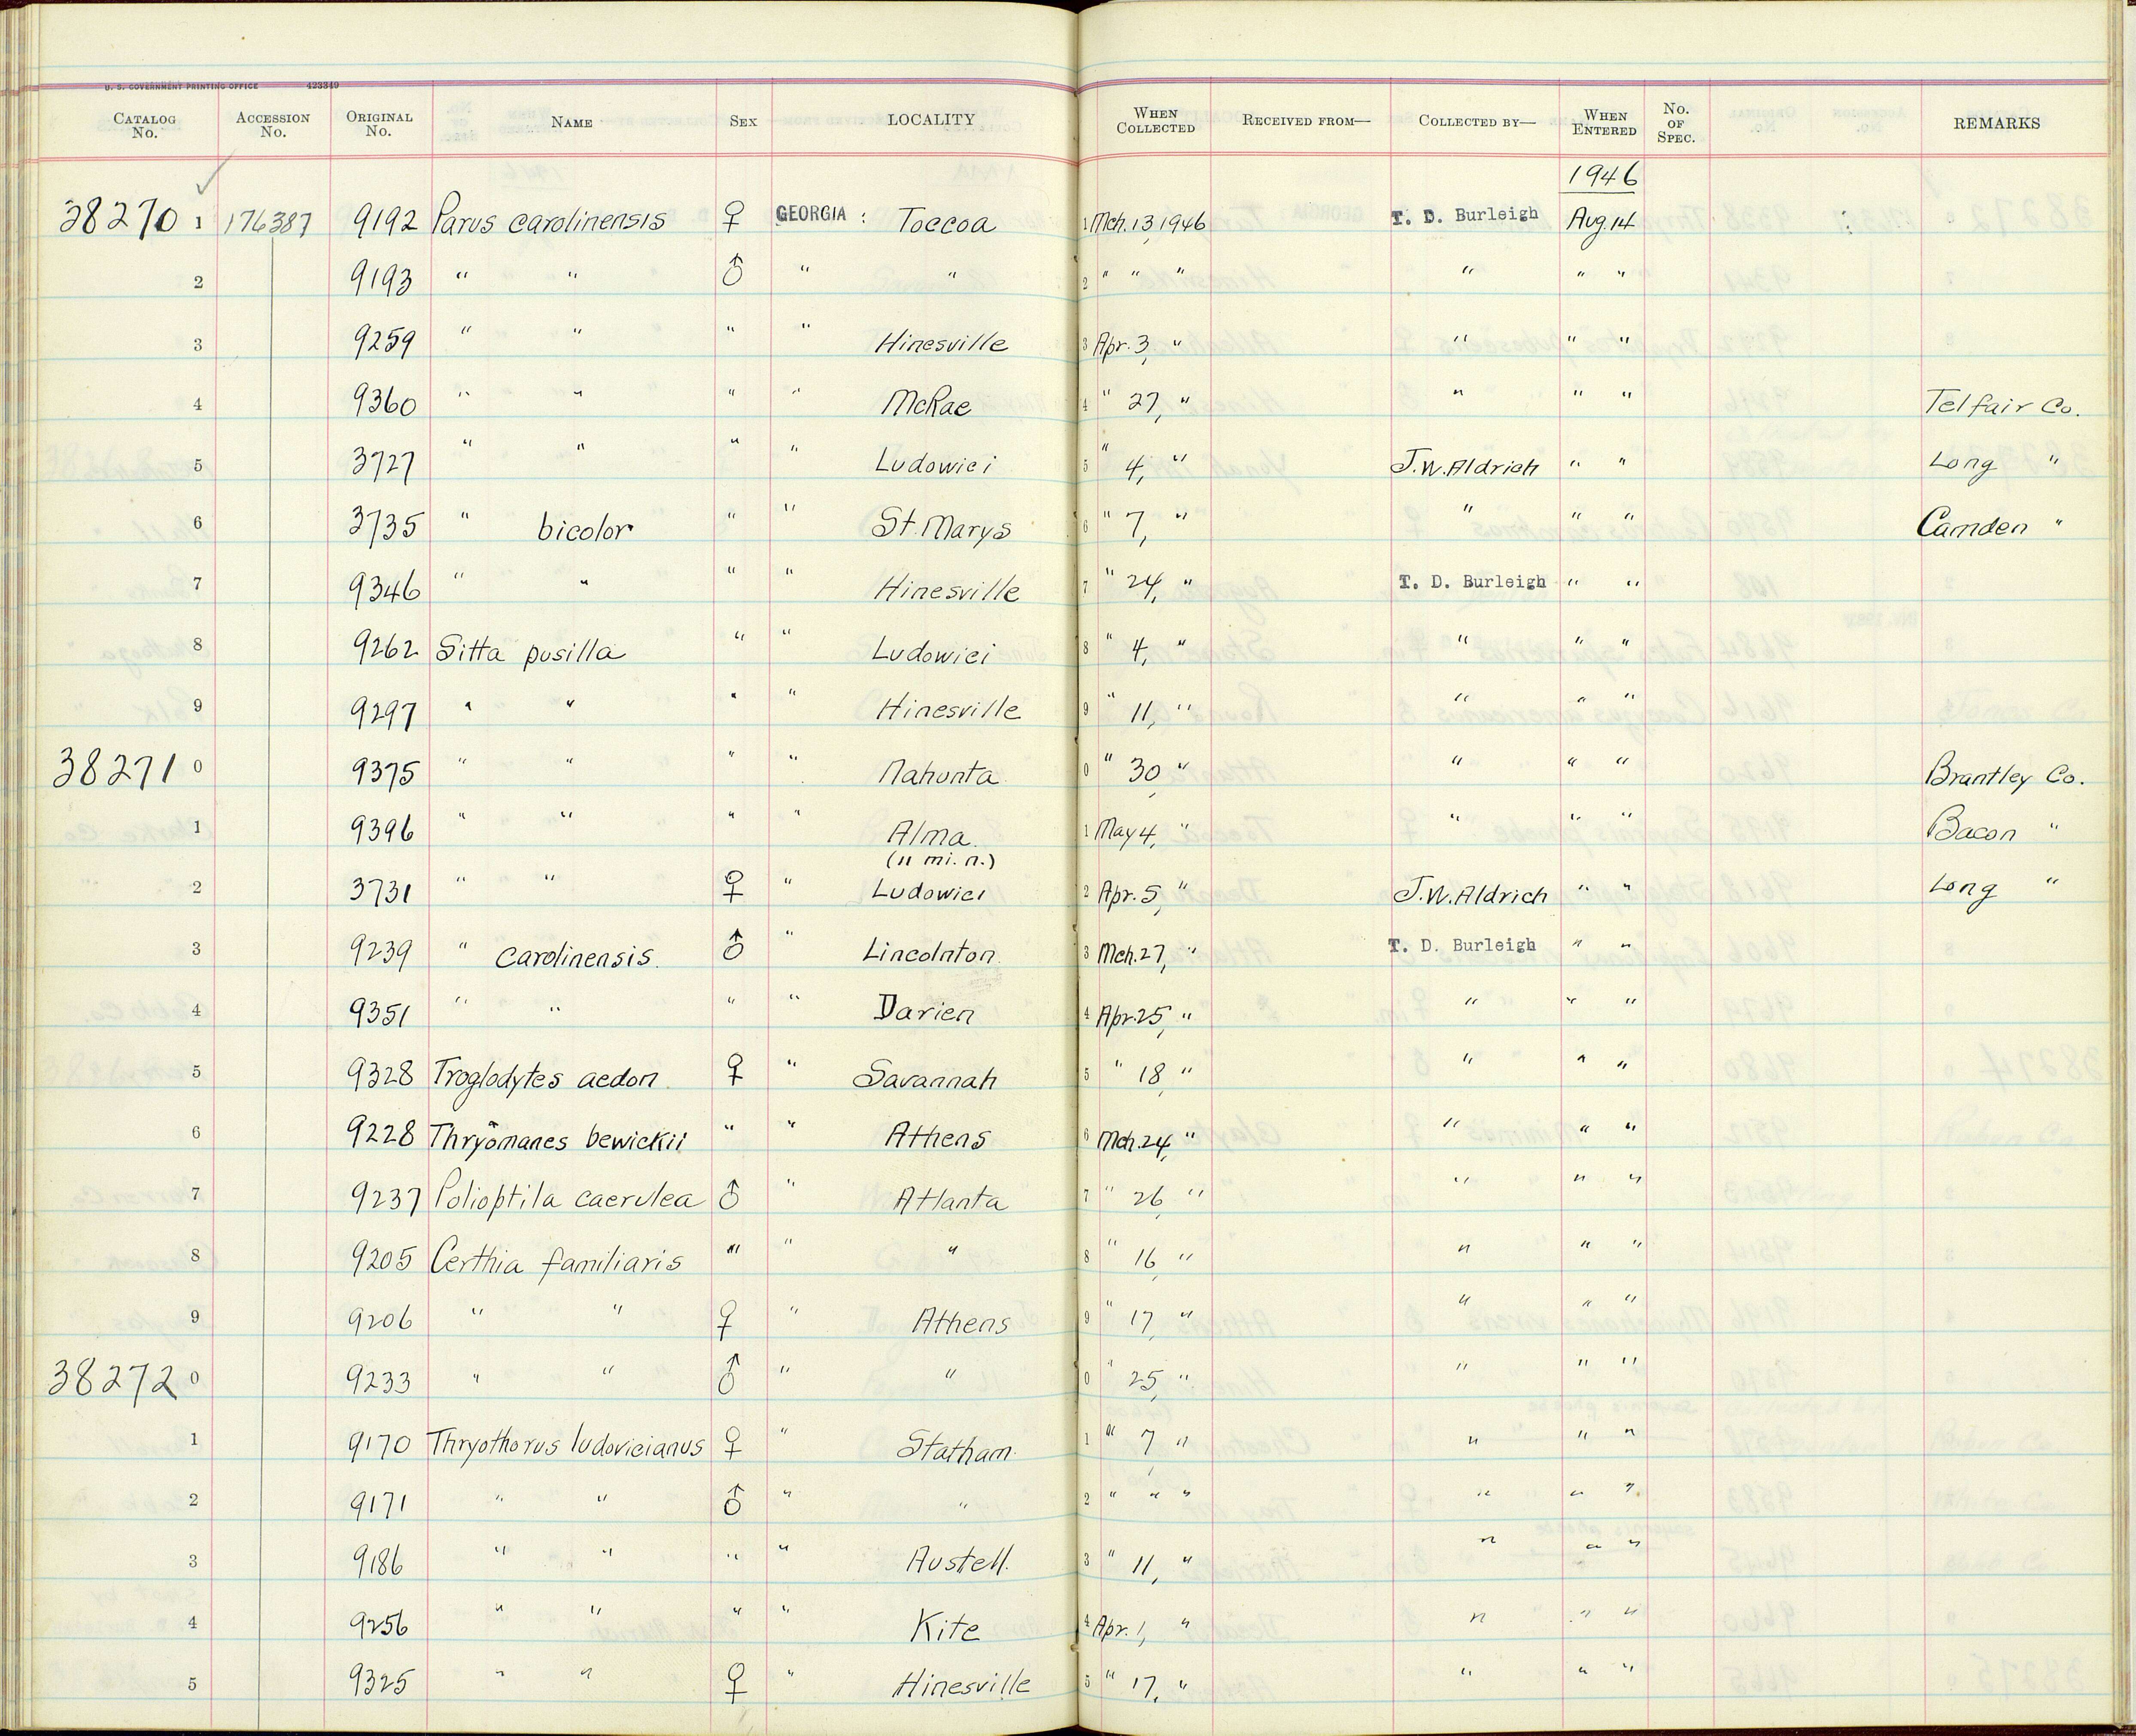 U. S. GOVERNMENT PRINTING OFFICE 423349
CATALOG No. ACCESSION No. ORIGINAL No. NAME SEX LOCALITY WHEN COLLECTED RECEIVED FROM— COLLECTED BY— WHEN ENTERED No. OF SPEC. REMARKS
1946
38270 1 176387 9192 Parus carolinensis ♀ GEORGIA : Toccoa 1 Mch. 13, 1946 T. D. Burleigh Aug. 14
2 9193 " " ♂ " " 2 " " " " " "
3 9259 " " " " Hinesville 3 Apr. 3, " " " "
4 9360 " " " " McRae 4 " 27, " " " " Telfair Co.
5 3727 " " " " Ludowici 5 " 4, " J.W. Aldrich " " Long "
6 3735 " bicolor " " St. Marys 6 " 7, " " " " Camden "
7 9346 " " " " Hinesville 7 " 24, " T. D. Burleigh " "
8 9262 Sitta pusilla " " Ludowici 8 " 4, " " " "
9 9297 " " " " Hinesville 9 " 11, " " " "
38271 0 9375 " " " " Nahunta 0 " 30, " " " " Brantley Co.
1 9396 " " " " Alma (11 mi. n.) 1 May 4, " " " " Bacon "
2 3731 " " ♀ " Ludowici 2 Apr. 5, " J.W. Aldrich " " Long "
3 9239 " carolinensis. ♂ " Lincolnton. 3 Mch. 27, " T. D. Burleigh " "
4 9351 " " " " Darien 4 Apr. 25, " " " "
5 9328 Troglodytes aedon. ♀ " Savannah 5 " 18, " " " "
6 9228 Thryomanes bewickii " " Athens 6 Mch. 24, " " " "
7 9237 Polioptila caerulea ♂ " Atlanta 7 " 26, " " " "
8 9205 Certhia familiaris " " " 8 " 16, " " " "
9 9206 " " ♀ " Athens 9 " 17, " " " "
38272 0 9233 " " ♂ " " 0 " 25, " " " "
1 9170 Thryothorus ludovicianus ♀ " Statham. 1 " 7, " " " "
2 9171 " " ♂ " " 2 " " " " " "
3 9186 " " " " Austell. 3 " 11, " " " "
4 9256 " " " " Kite 4 Apr. 1, " " " "
5 9325 " " ♀ " Hinesville 5 " 17, " " " "